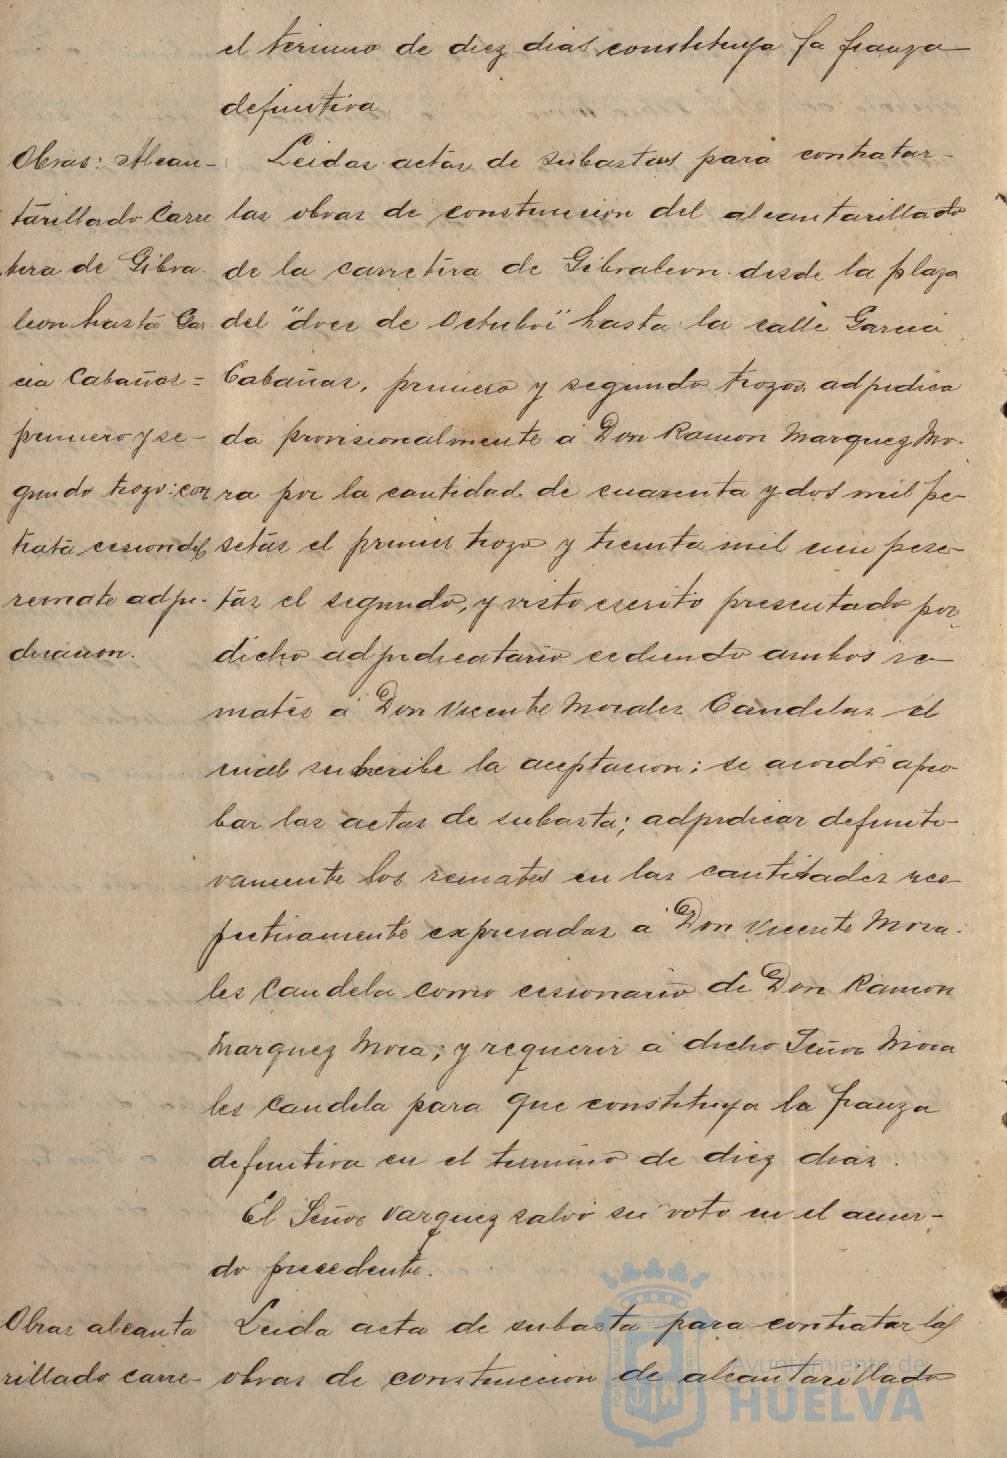 el termino de diez dias constituya la fianza
definitiva
Obras: Alcan-
tarillado Carre
tera de Gibra-
leon hasta Gar
cia Cabañas=
primero y se-
gundo trozo: con
trata cesion del
remate adju-
dicacion.
Leidas actas de subastas para contratar-
las obras de construccion del alcantarillado
de la carretera de Gibraleon desde la plaza
del "doce de Octubre" hasta la calle Garcia
Cabañas, primero y segundo trozos adjudica
da provisionalmente á Don Ramon Marquez Mo-
ra por la cantidad de cuarenta y dos mil pe-
setas el primer trozo y treinta mil cien pese-
tas el segundo, y visto escrito presentado por
dicho adjudicatario cediendo ambos re-
mates á Don Vicente Morales Candelas el
cual suscribe la aceptacion; se acordó apro
bar las actas de subasta; adjudicar definiti-
vamente los remates en las cantidades res-
pectivamente expresadas á Don Vicente Mora-
les Candela como cesionario de Don Ramon
Marquez Mora; y requerir á dicho Señor Mora
les Candela para que constituya la fianza
definitiva en el termino de diez dias.
El Señor Vazquez salvó su voto en el acuer-
do precedente.
Obras alcanta
rillado carre-
Leida acta de subasta para contratar las
obras de construccion de alcantarillado
Ayuntamiento de
HUELVA